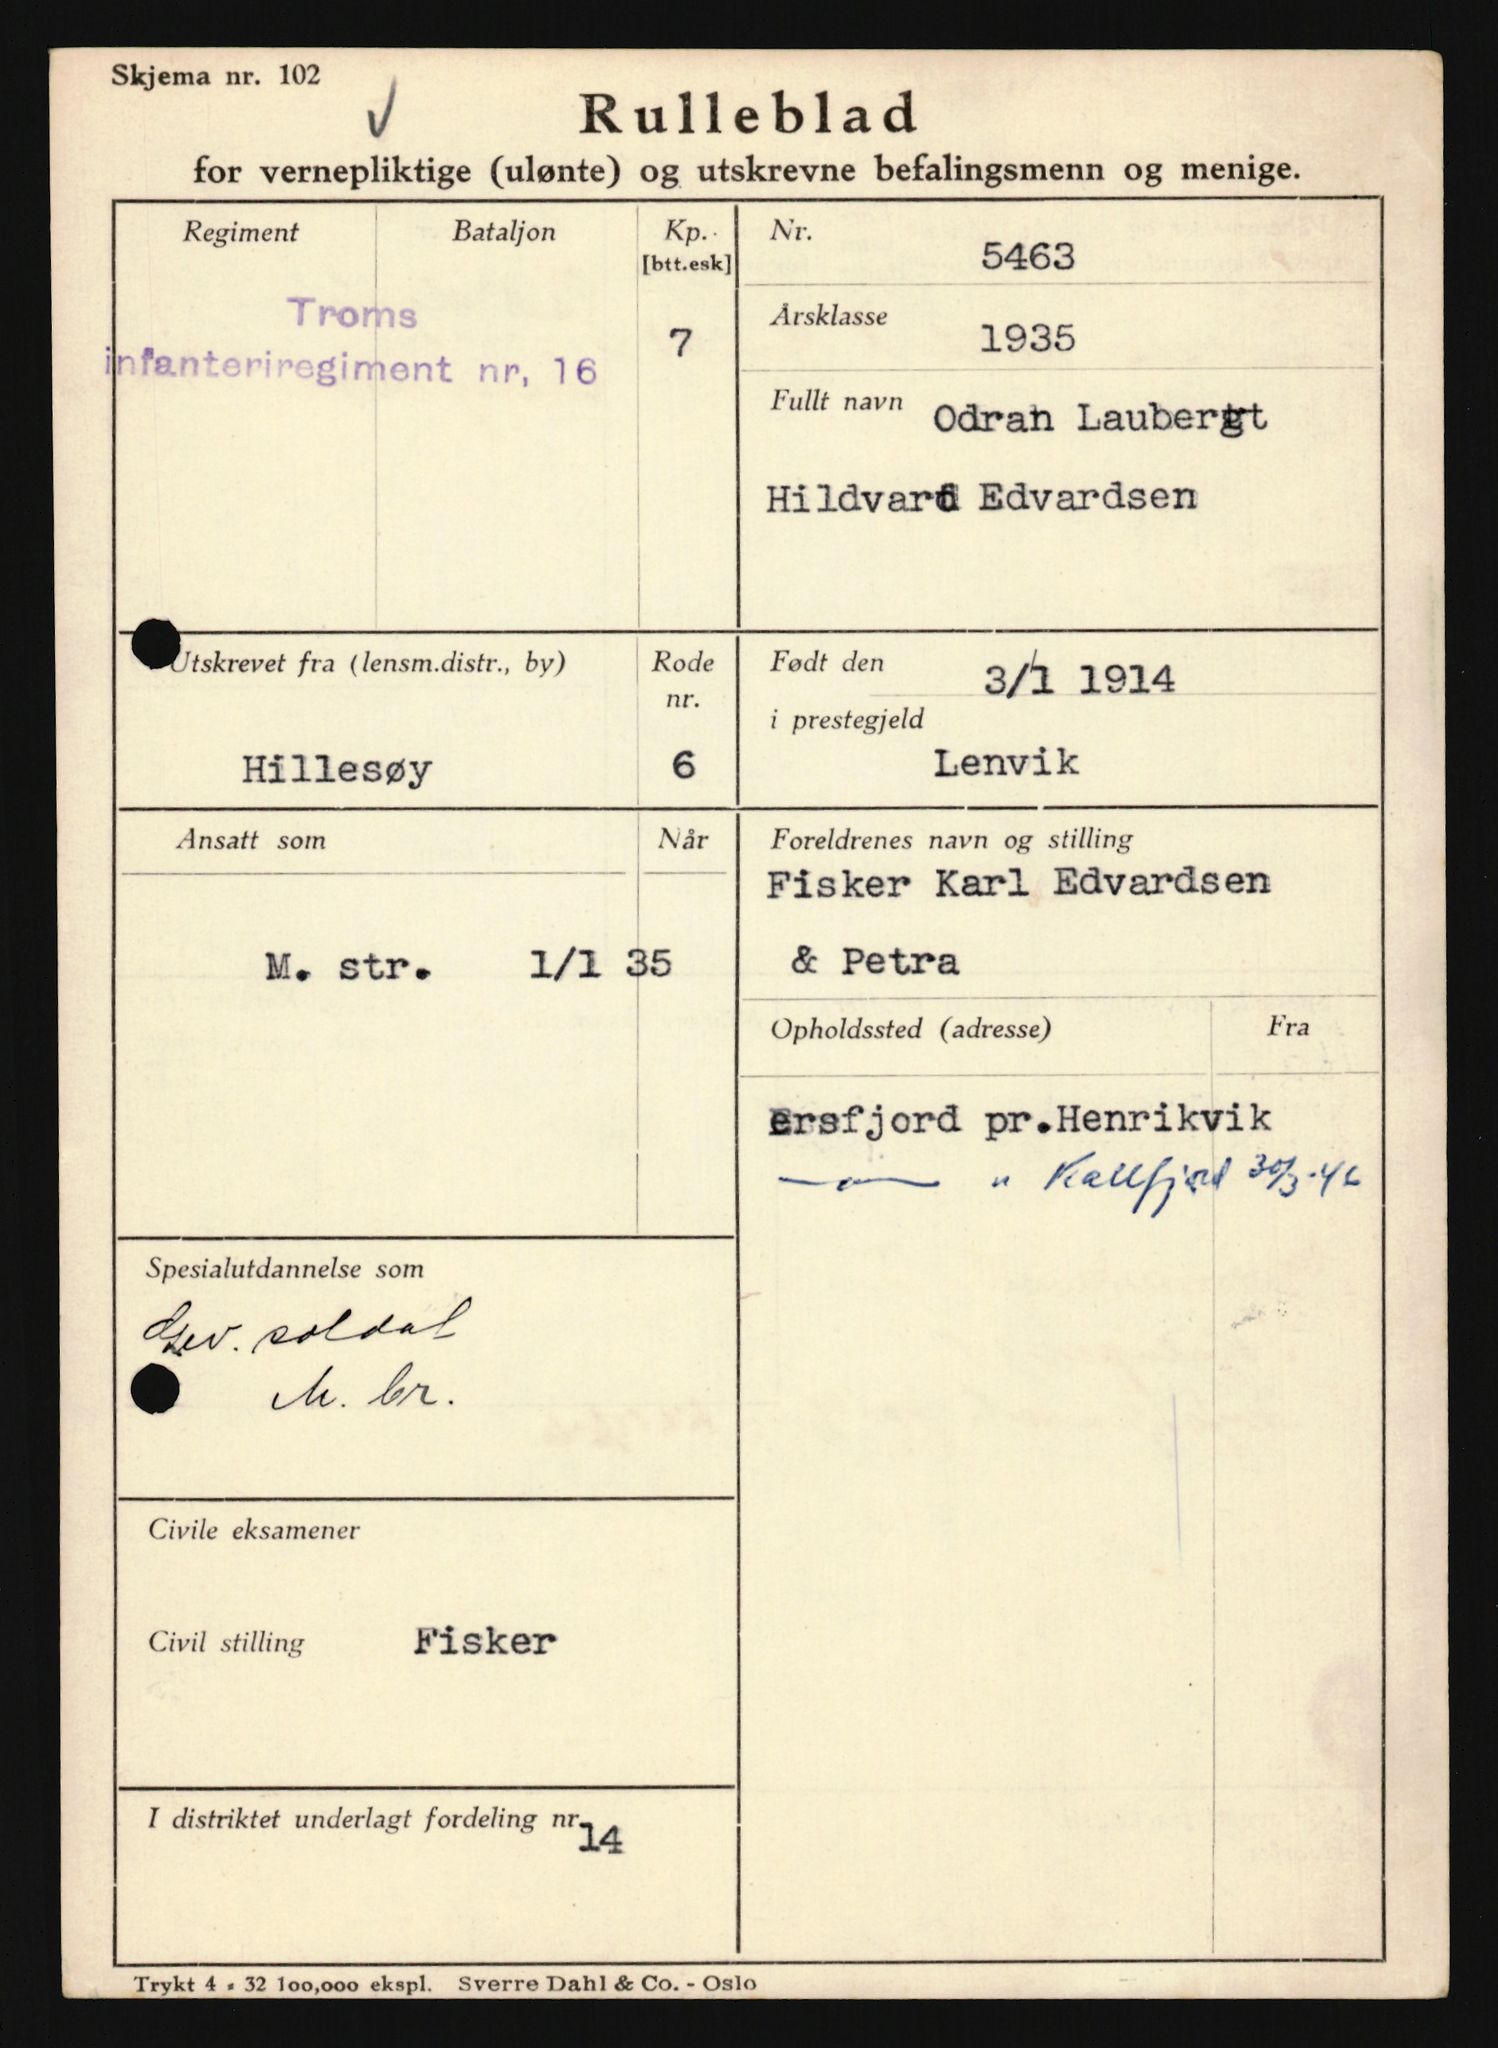 Skjema nr. 102
Rulleblad
for vernepliktige (ulønte) og utskrevne befalingsmenn og menige.
Regiment Bataljon Kp. [btt.esk]
Troms
infanteriregiment nr, 16
7
Nr.
5463
Årsklasse
1935
Fullt navn Odran Laubert
Hildvard Edvardsen
Utskrevet fra (lensm.distr., by) Rode nr.
Hillesøy 6
Født den
3/1 1914
i prestegjeld
Lenvik
Ansatt som Når
M. str. 1/1 35
Foreldrenes navn og stilling
Fisker Karl Edvardsen
& Petra
Opholdssted (adresse) Fra
Ersfjord pr.Henrikvik
—"— " Kallfjord 30/3-46
Spesialutdannelse som
Gev. soldat
M. br.
Civile eksamener
Civil stilling Fisker
I distriktet underlagt fordeling nr. 14
Trykt 4 - 32 100,000 ekspl. Sverre Dahl & Co. - Oslo